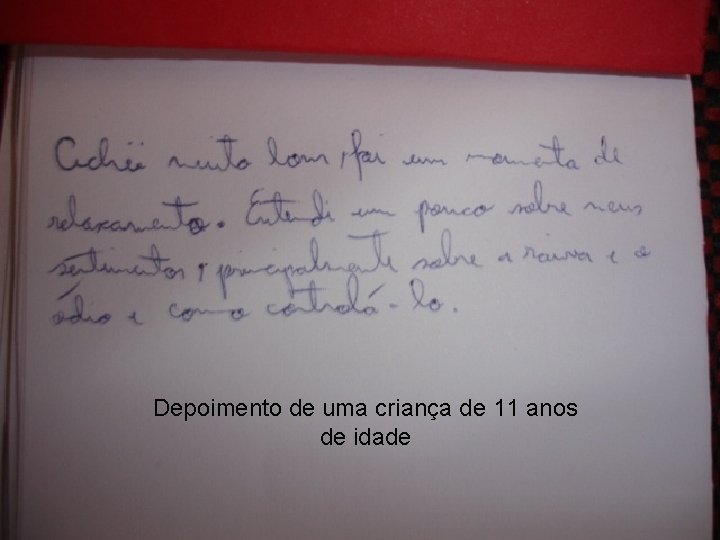 Achei muito bom, foi um momento de
relaxamento. Entendi um pouco sobre meus
sentimentos, principalmente sobre a raiva e o
ódio e como controlá-lo.
Depoimento de uma criança de 11 anos
de idade